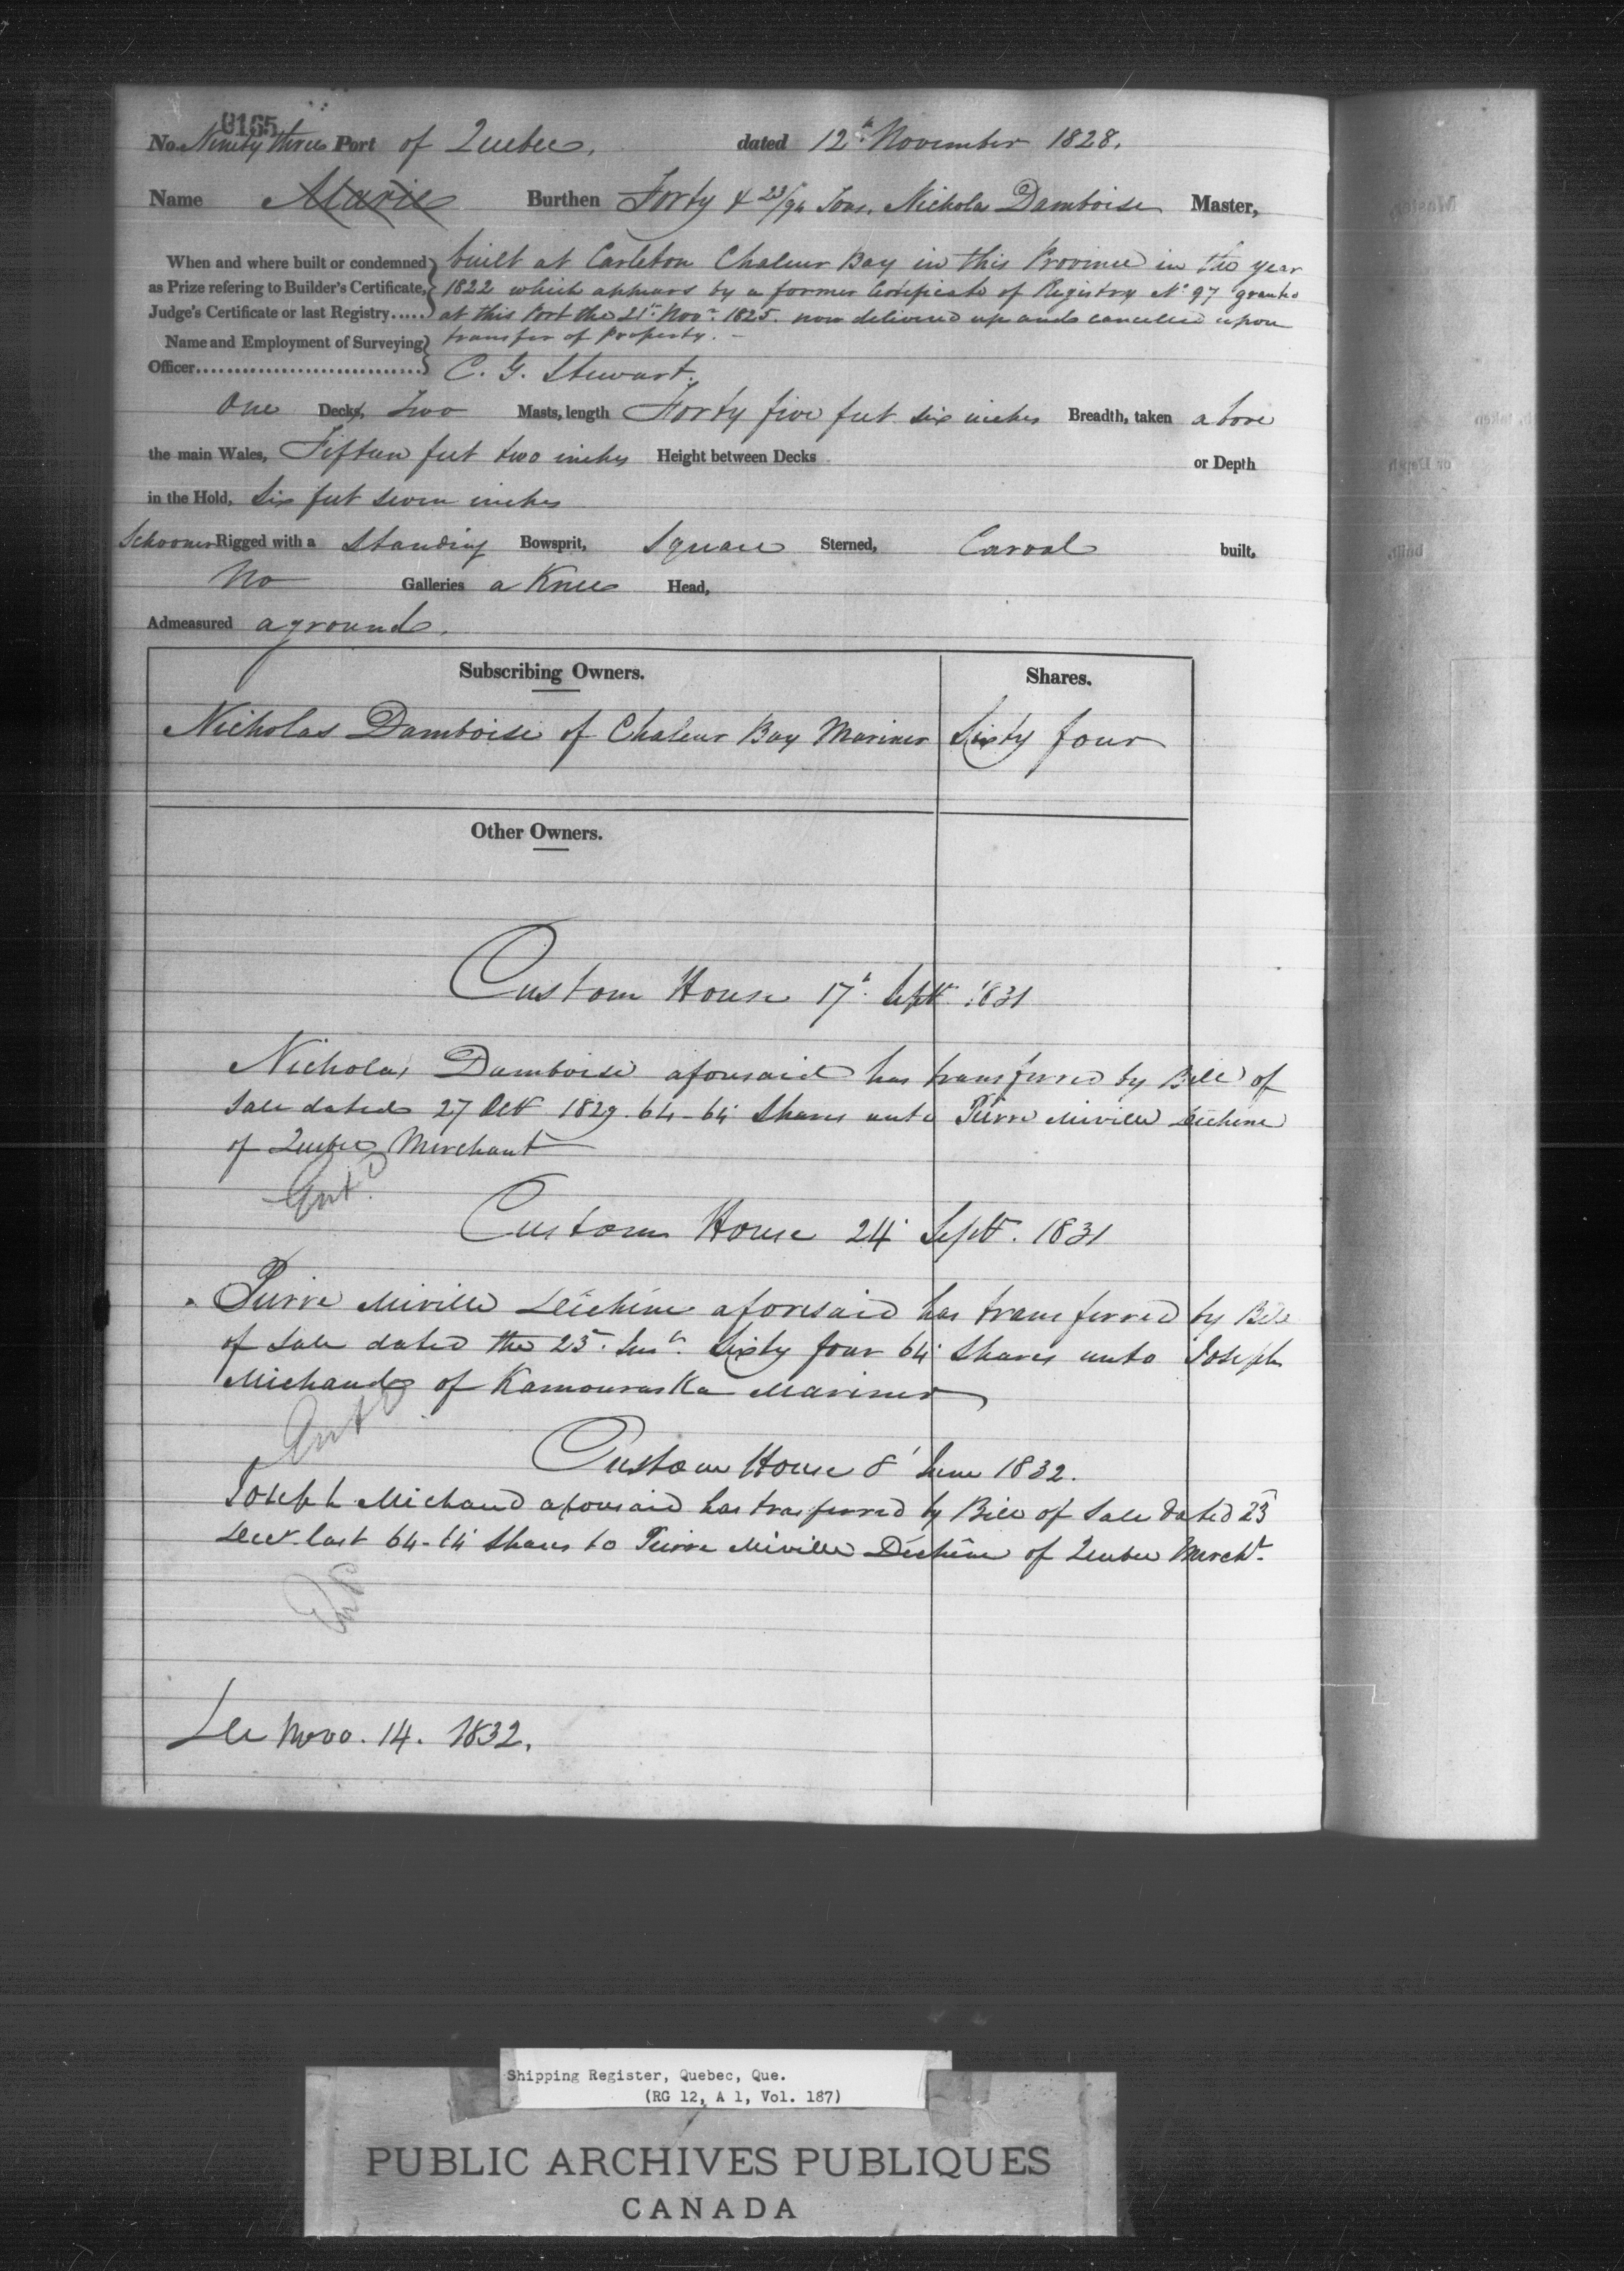 0165
No. Ninety three Port of Quebec, dated 12th November 1828.
Name Marie Burthen Forty & 23/94 Tons, Nicholas Damboise Master,
When and where built or condemned as Prize refering to Builder's Certificate, Judge's Certificate or last Registry..... built at Carleton Chaleur Bay in this Province in the year
1822 which appears by a former Certificate of Registry No. 97 granted
at this Port the 21st Novr. 1825. now delivered up and cancelled upon
transfer of Property. -
Name and Employment of Surveying Officer.............................. C. G. Stewart.
One Decks, Two Masts, length Forty five feet six inches Breadth, taken above
the main Wales, Fifteen feet two inches Height between Decks or Depth
in the Hold, Six feet seven inches
Schooner Rigged with a Standing Bowsprit, Square Sterned, Carval built,
No Galleries a Knee Head,
Admeasured aground.
Subscribing Owners. Shares.
Nicholas Damboise of Chaleur Bay Mariner Sixty four
Other Owners.
Custom House 17th Septr 1831
Nicholas Damboise aforesaid has transferred by Bill of
Sale dated 27 Oct 1829. 64-64 Shares unto Pierre Miville Déchêne
of Quebec Merchant
Entd.
Custom House 24 Septr. 1831
Pierre Miville Déchêne aforesaid has transferred by Bill
of Sale dated the 23 Inst. Sixty four 64 Shares unto Joseph
Michaud of Kamouraska Mariner
Entd
Custom House 8 June 1832.
Joseph Michaud aforesaid has trasferred by Bill of Sale dated 23
Decr last 64-64 Shares to Pierre Miville Déchêne of Quebec Mercht.
Entd
Novo. 14. 1832.
Shipping Register, Quebec, Que.
(RG 12, A 1, Vol. 187)
PUBLIC ARCHIVES PUBLIQUES
CANADA